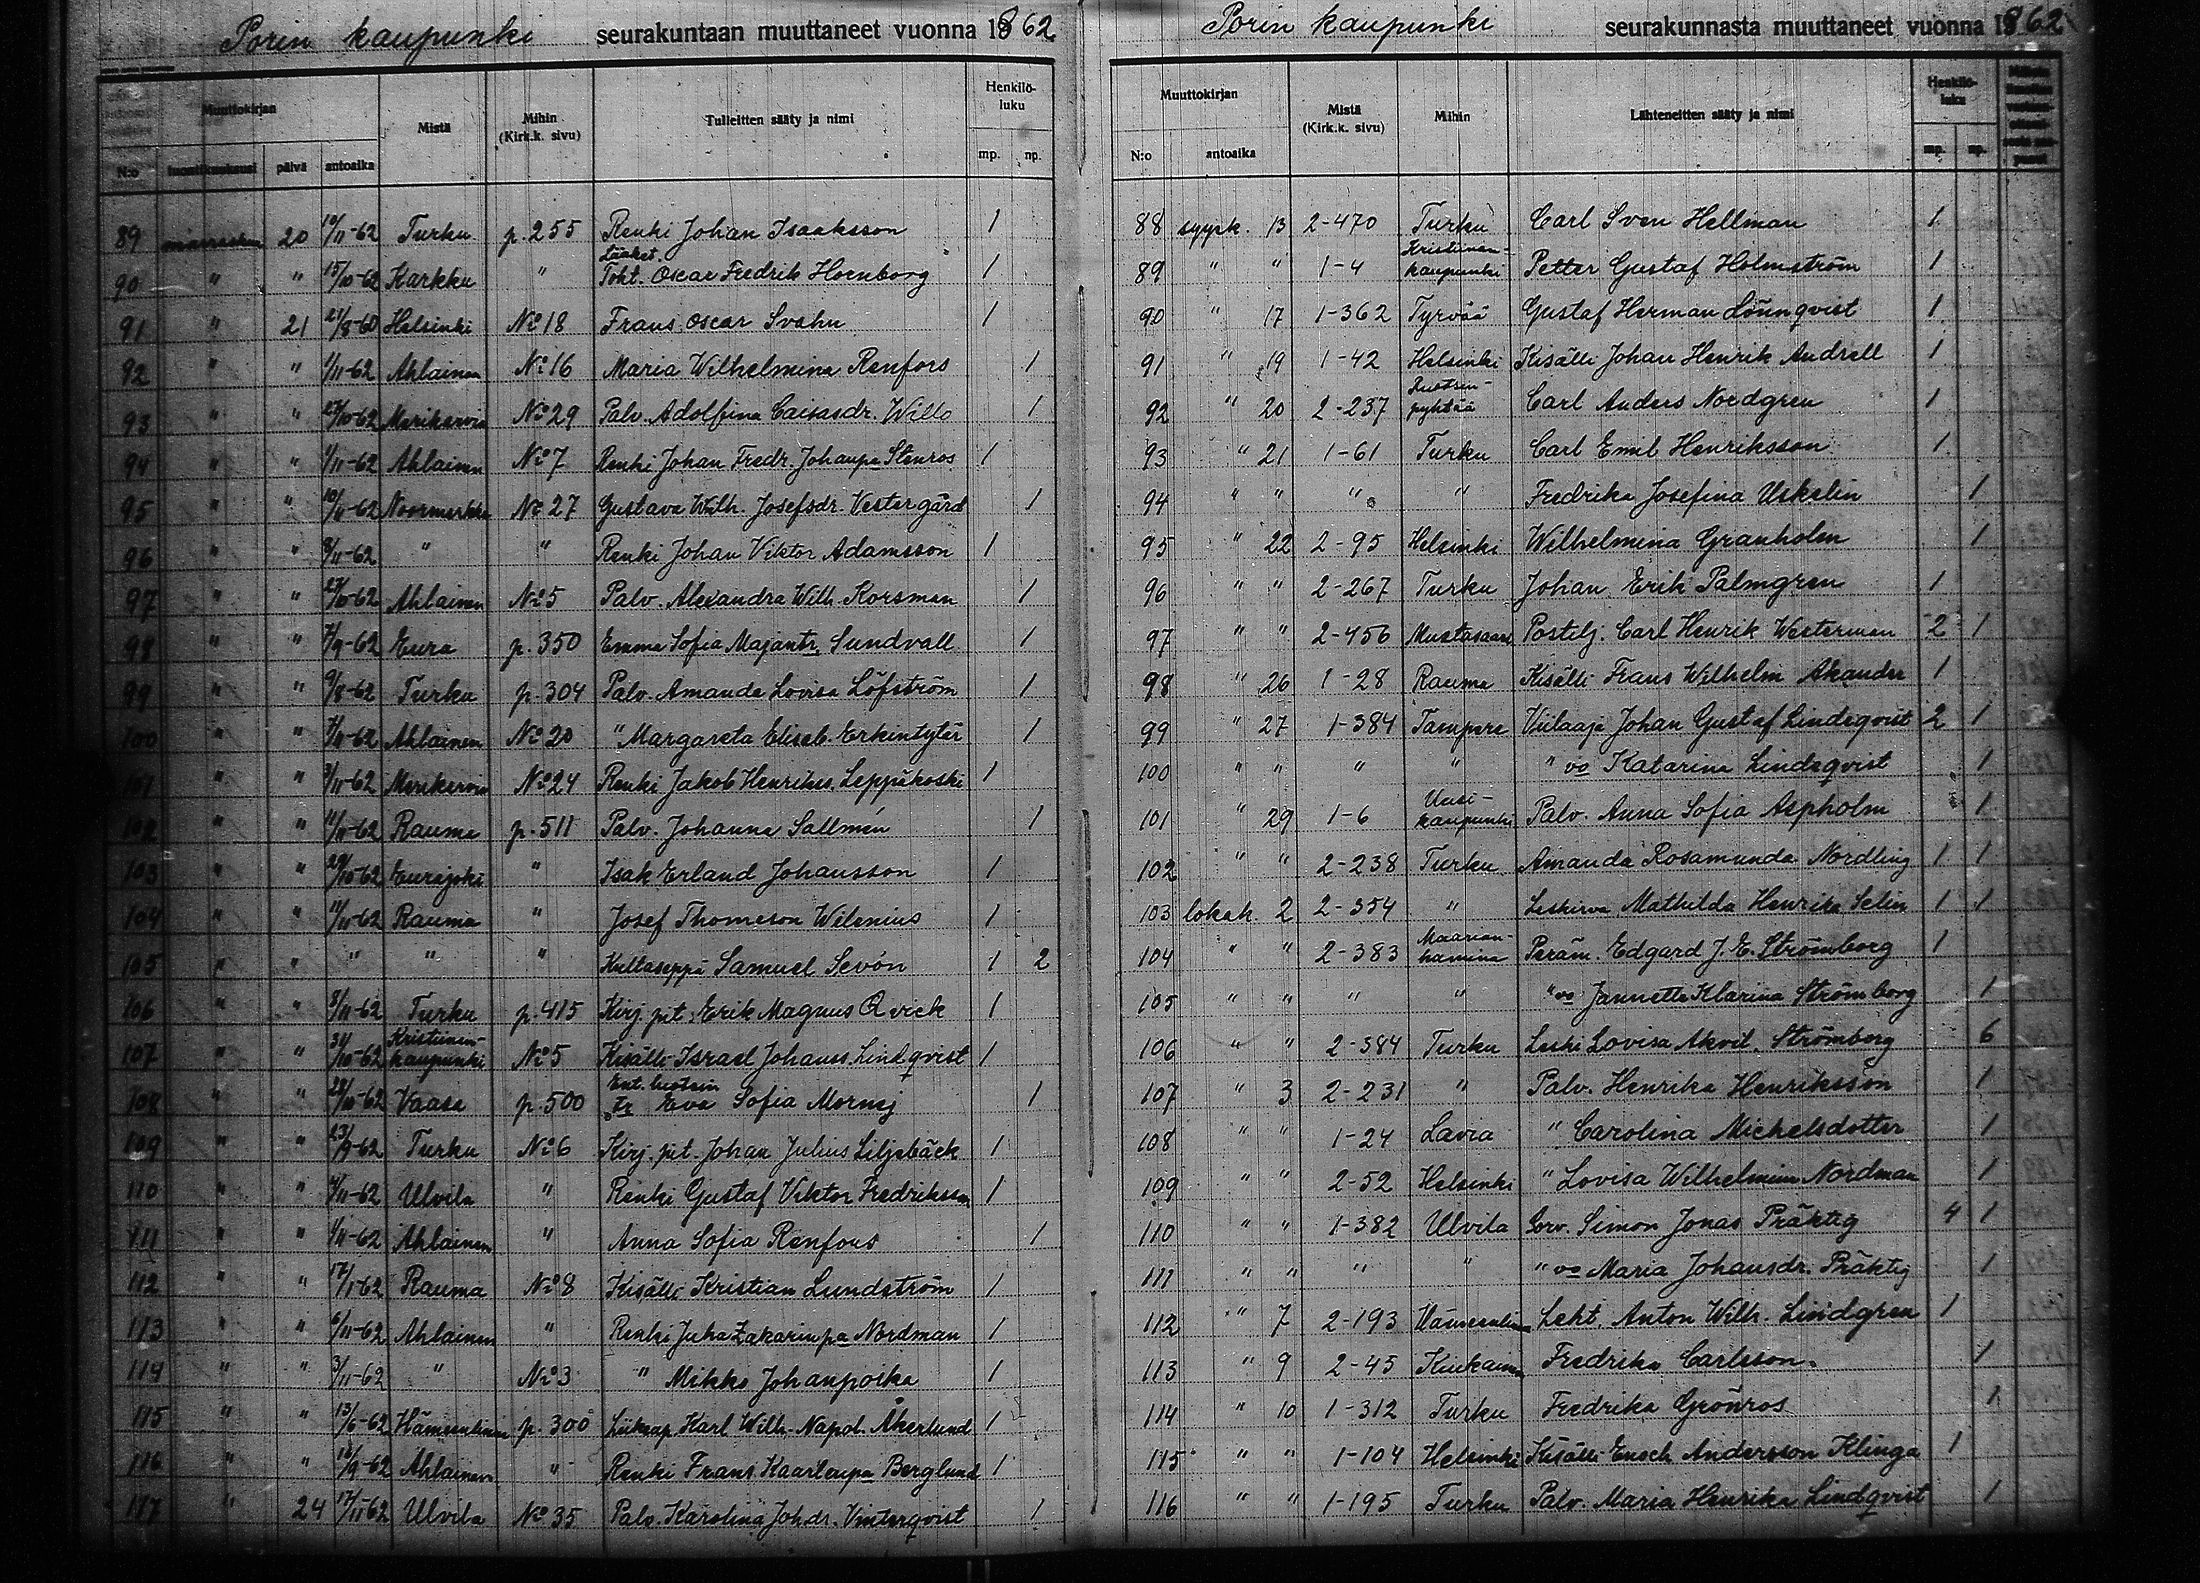 Porin kaupunki seurakuntaan muuttaneet vuonna 1862
Muuttokirjan Mistä Mihin (Kirk.k. sivu) Tulleitten sääty ja nimi Henkilö-luku
N:o päivä antoaika mp. np.
89 marrask. 20 10/11-62 Turku p. 255 Renki Johan Isaaksson 1
90 " " 15/10-62 Karkku " Lääket. Toht. Oscar Fredrik Hornborg 1
91 " 21 21/8-60 Helsinki No 18 Frans Oscar Svahn 1
92 " " 1/11-62 Ahlainen No 16 Maria Wilhelmina Renfors 1
93 " " 27/10-62 Merikarvia No 29 Palv. Adolfina Caisasdr. Willo 1
94 " " 1/11-62 Ahlainen No 7 Renki Johan Fredr. Johanpa Stenros 1
95 " " 10/11-62 Noormarkku No 27 Gustava Wilh. Josefsdr. Vestergård 1
96 " " 8/11-62 " " Renki Johan Viktor Adamsson 1
97 " " 27/10-62 Ahlainen No 5 Palv. Alexandra Wilh. Korsman 1
98 " " 7/9-62 Eura p. 350 Emma Sofia Majantr. Sundvall 1
99 " " 9/8-62 Turku p. 304 Palv. Amanda Lovisa Löfström 1
100 " " Ahlainen No 20 " Margareta Eliseb. Erkintytär 1
101 " " 3/11-62 Merikarvia No 24 Renki Jakob Henrikss. Leppäkoski 1
102 " " 11/11-62 Rauma p. 511 Palv. Johanna Sallmén 1
103 " " 29/10-62 Eurajoki " Isak Erland Johansson 1
104 " " 11/11-62 Rauma " Josef Thomeson Wilenius 1
105 " " " " " Kultaseppä Samuel Sevón 1 2
106 " " 8/11-62 Turku p. 415 Kirj. pit. Erik Magnus Qvick 1
107 " " 31/10-62 Kristiinan-kaupunki No 5 Kisälli Israel Johanss. Lindqvist 1
108 " " 28/10-62 Vaasa p. 500 Eva Sofia Mornej 1
109 " " 23/9-62 Turku No 6 Kirj. pit. Johan Julius Liljebäck 1
110 " " Ulvila " Renki Gustaf Viktor Fredriksson 1
111 " " 1/11-62 Ahlainen " Anna Sofia Renfors 1
112 " " 17/1-62 Rauma No 8 Kisälli Kristian Lundström 1
113 " " 6/11-62 Ahlainen " Renki Juha Zakarinpa Nordman 1
114 " " 3/11-62 " No 3 " Mikko Johanpoika 1
115 " " 13/6-62 Hämeenlinna p. 300 Karl Wilh. Napol. Åkerlund 1
116 " " Ahlainen " Renki Frans Kaarlonpa Berglund 1
117 " 24 17/11-62 Ulvila No 35 Palv. Karolina Joh.dr. Vinterqvist 1
Porin kaupunki seurakunnasta muuttaneet vuonna 1862
Muuttokirjan Mistä (Kirk.k. sivu) Mihin Lähteneitten sääty ja nimi Henkilö-luku
N:o antoaika mp. np.
88 syysk. 13 2-470 Turku Carl Sven Hellman 1
89 " " 1-4 Kristiinan-kaupunki Petter Gustaf Holmström 1
90 " 17 1-362 Tyrvää Gustaf Herman Lönnqvist 1
91 " 19 1-42 Helsinki Kisälli Johan Henrik Andrell 1
92 " 20 2-237 Ruotsin-pyhtää Carl Anders Nordgren 1
93 " 21 1-61 Turku Carl Emil Henriksson 1
94 " " " " Fredrika Josefina Uskelin 1
95 " 22 2-95 Helsinki Wilhelmina Granholm 1
96 " " 2-267 Turku Johan Erik Palmgren 1
97 " " 2-456 Mustasaari Postilj. Carl Henrik Westerman 2 1
98 " 26 1-28 Rauma Kisälli Frans Wilhelm Akander 1
99 " 27 1-384 Tampere Viilaaja Johan Gustaf Lindeqvist 2 1
100 " " " " " vo Katarina Lindeqvist 1
101 " 29 1-6 Uusi-kaupunki Palv. Anna Sofia Aspholm 1
102 " " 2-238 Turku Amanda Rosamunda Nordling 1 1
103 lokak 2 2-354 " Leskirva Mathilda Henrika Selin 1 1
104 " " 2-383 Maarian-hamina Peräm. Edgard J. E. Strömborg 1
105 " " " " " vo Jannette Klarina Strömborg 1
106 " " 2-384 Turku Leski Lovisa Akvil. Strömborg 6
107 " 3 2-231 " Palv. Henrika Henriksson 1
108 " " 1-24 Lavia " Carolina Michelsdotter 1
109 " " 2-52 Helsinki " Lovisa Wilhelmina Nordman 1
110 " " 1-382 Ulvila Sorv. Simon Jonas Präktig 4 1
111 " " " " " vo Maria Johansdr. Präktig 1
112 " 7 2-193 Hämeenlinna Leht. Anton Wilh. Lindgren 1
113 " 9 2-45 Kiukainen Fredrika Carlsson. 1
114 " 10 1-312 Turku Fredrika Grönros 1
115 " " 1-104 Helsinki Kisälli Enoch Andersson Klinga 1
116 " " 1-195 Turku Palv. Maria Henrika Lindqvist 1